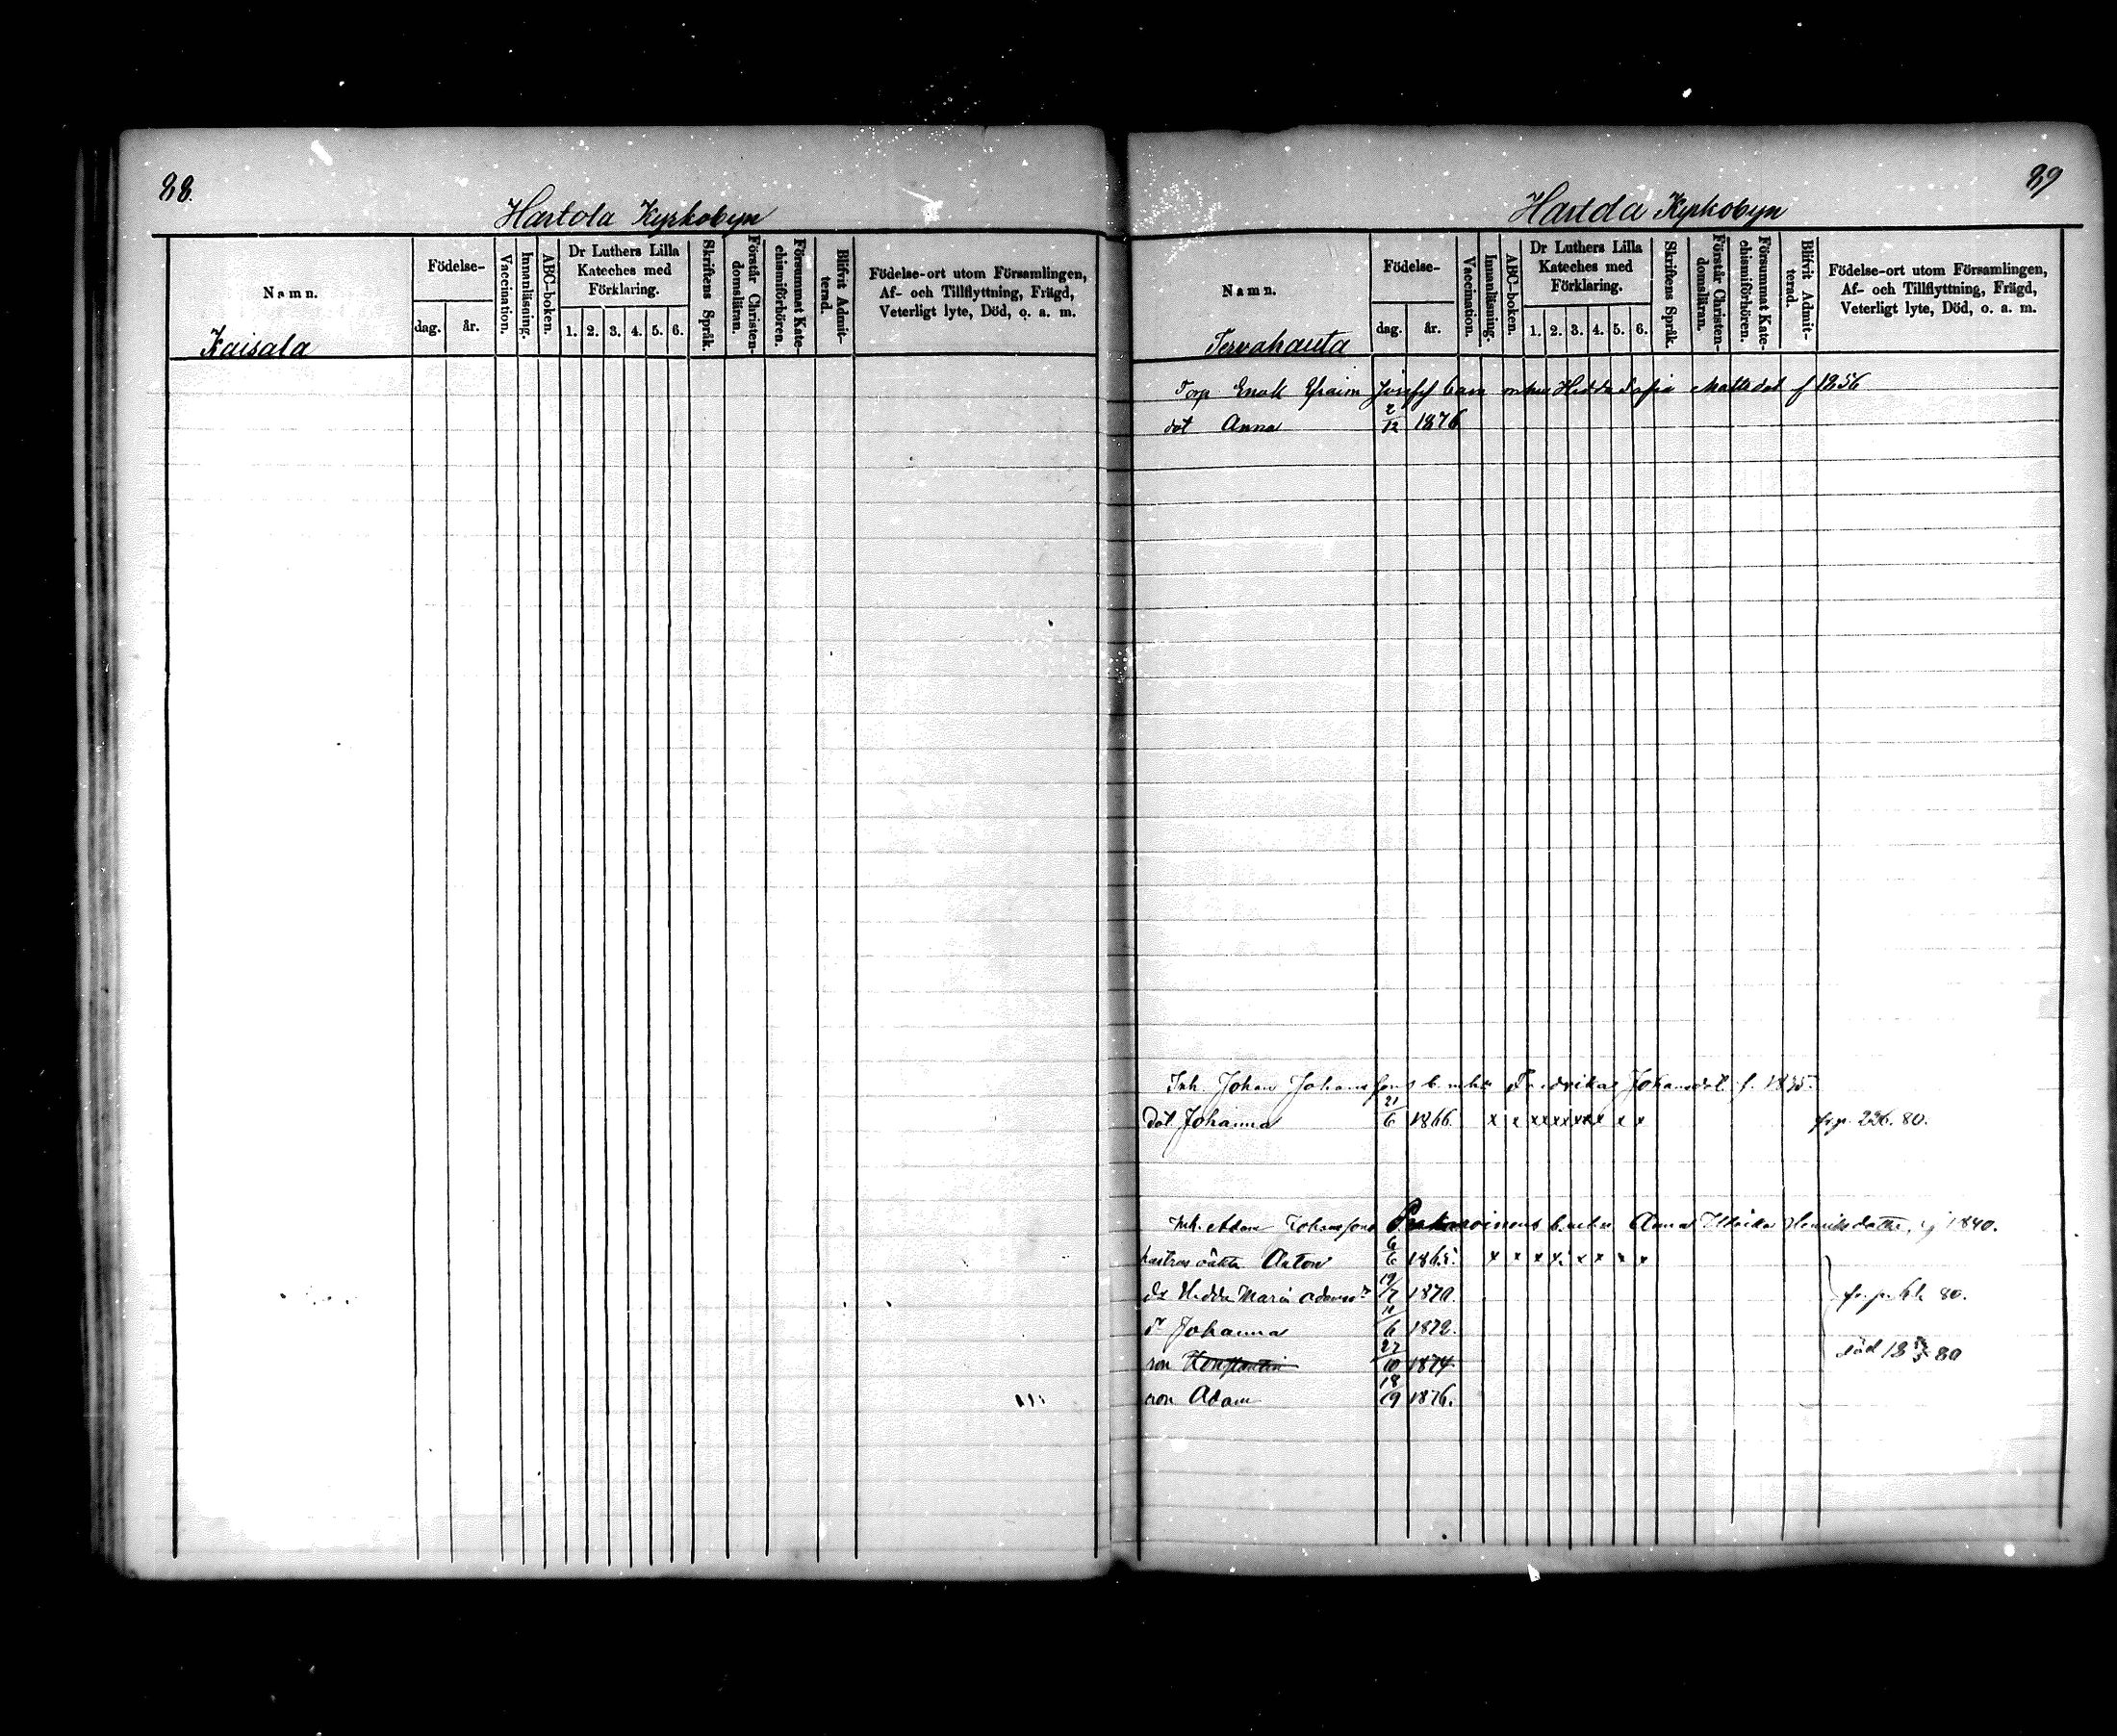 88.
Hartola Kyrkobyn
Namn.
Födelse-
dag.
år.
Vaccination.
Innanläsning.
ABC-boken.
Dr Luthers Lilla
Kateches med
Förklaring.
1. 2. 3. 4. 5. 6.
Skriftens Språk.
Förstår Christen-
domsläran.
Försummat Kate-
chismiförhören.
Blifvit Admit-
terad.
Födelse-ort utom Församlingen,
Af- och Tillflyttning, Frägd,
Veterligt lyte, Död, o. a. m.
Kaisala
89
Hartola Kyrkobyn
Namn.
Födelse-
dag.
år.
Vaccination.
Innanläsning.
ABC-boken.
Dr Luthers Lilla
Kateches med
Förklaring.
1. 2. 3. 4. 5. 6.
Skriftens Språk.
Förstår Christen-
domsläran.
Försummat Kate-
chismiförhören.
Blifvit Admit-
terad.
Födelse-ort utom Församlingen,
Af- och Tillflyttning, Frägd,
Veterligt lyte, Död, o. a. m.
Tervahauta
Torp Enok Efraim barn Hedda Sofia Mattsdot f 1856
dot Anna 2/12 1876
Inh. Johan Johanssons Fredrika Johansdot f.
Dot Johanna 21/6 1866. x x x x x x x x x x fr.p. 226. 80.
Inh. Adam Johansson Anna Ulrika Henriksdotter, 1840.
Anton 6/6 1865. x x x x x x x x
Hedda Maria 19/7 1870. 80.
Dr Johanna 11/6 1872.
son Konstantin 27/10 1874 död 80
son Adam 18/9 1876.